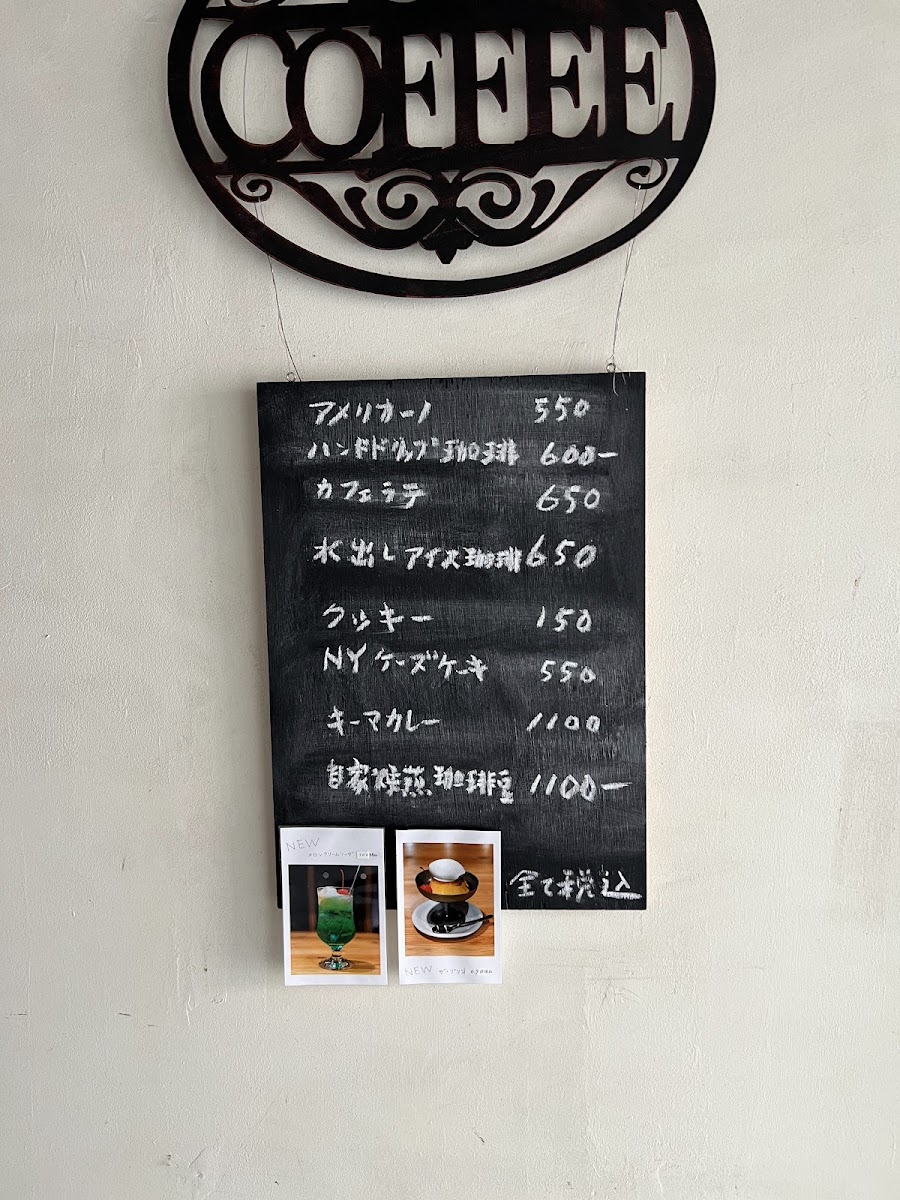 COFFEE
アメリカーノ 550
ハンドドリップ珈琲 600ー
カフェラテ 650
水出しアイス珈琲 650
クッキー 150
NYケーズケーキ 550
キーマカレー 1100
自家焙煎珈琲豆 1100ー
全て税込
NEW
メロンクリームソーダ
NEW